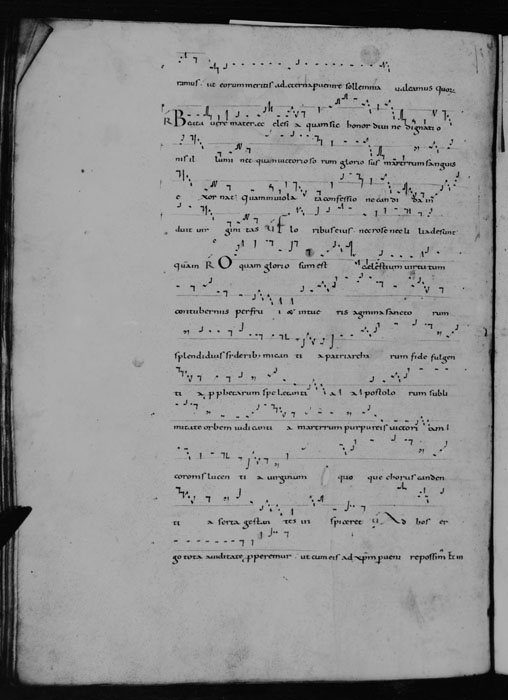 ramus ut eorum meritis ad eterna puenire sollemnia ualeamus quoru
R Beata uere mater ec clesi a quam sic honor diui ne dignati o
nis il lumi net quam uictorio so rum glorio sus martirum sanguis
e xor nat quam inuiola ta confessio ne can di da in
duit uir gini tas V flo ribus eius nec rose nec li lia desunt
quam R O quam glorio sum est celestium uirtutum
contuberniis perfru i & intue ris agmina sancto rum
splendidius siderib; mican ti a patriarcha rum fide fulgen
ti a pphetarum spe letanti a a postolo rum subli
mitate orbem iudicanti a martirum purpureis uictori am
coronis lucen ti a uirginum quo que chorus canden
ti a serta gestan tes in spiceret V Ad hos er
go tota auiditate pperemur ut cum eis ad xpm pueni re possim et in